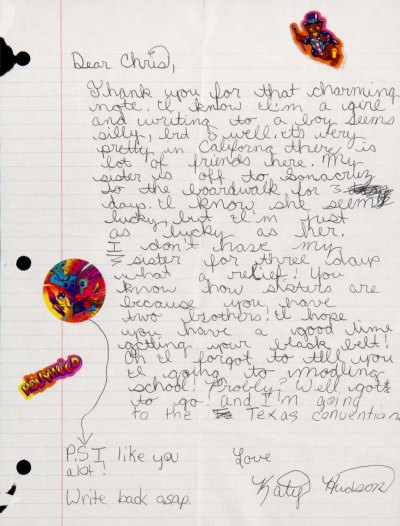 Dear Chris,
Thank you for that charming
note. I know I'm a girl
and writing to a boy seems
silly, but o well. it's very
pretty in Californa there is
lot of friends here. My
sister is off to Sanacruz
to the boardwalk for 3
days. I know she seems
lucky, but I'm just
as lucky as her.
I don't have my
sister for three days
what a relief! You
know how sisters are
because you have
two brothers! I hope
you have a good time
getting your black belt!
Oh I forgot to tell you
I going to modling
school! Probly? Well gotta
to go! and I'm going
to the Texas convention
P.S I like you
alot!
Love
Katy Hudson
Write back asap.
HOLLYWOOD